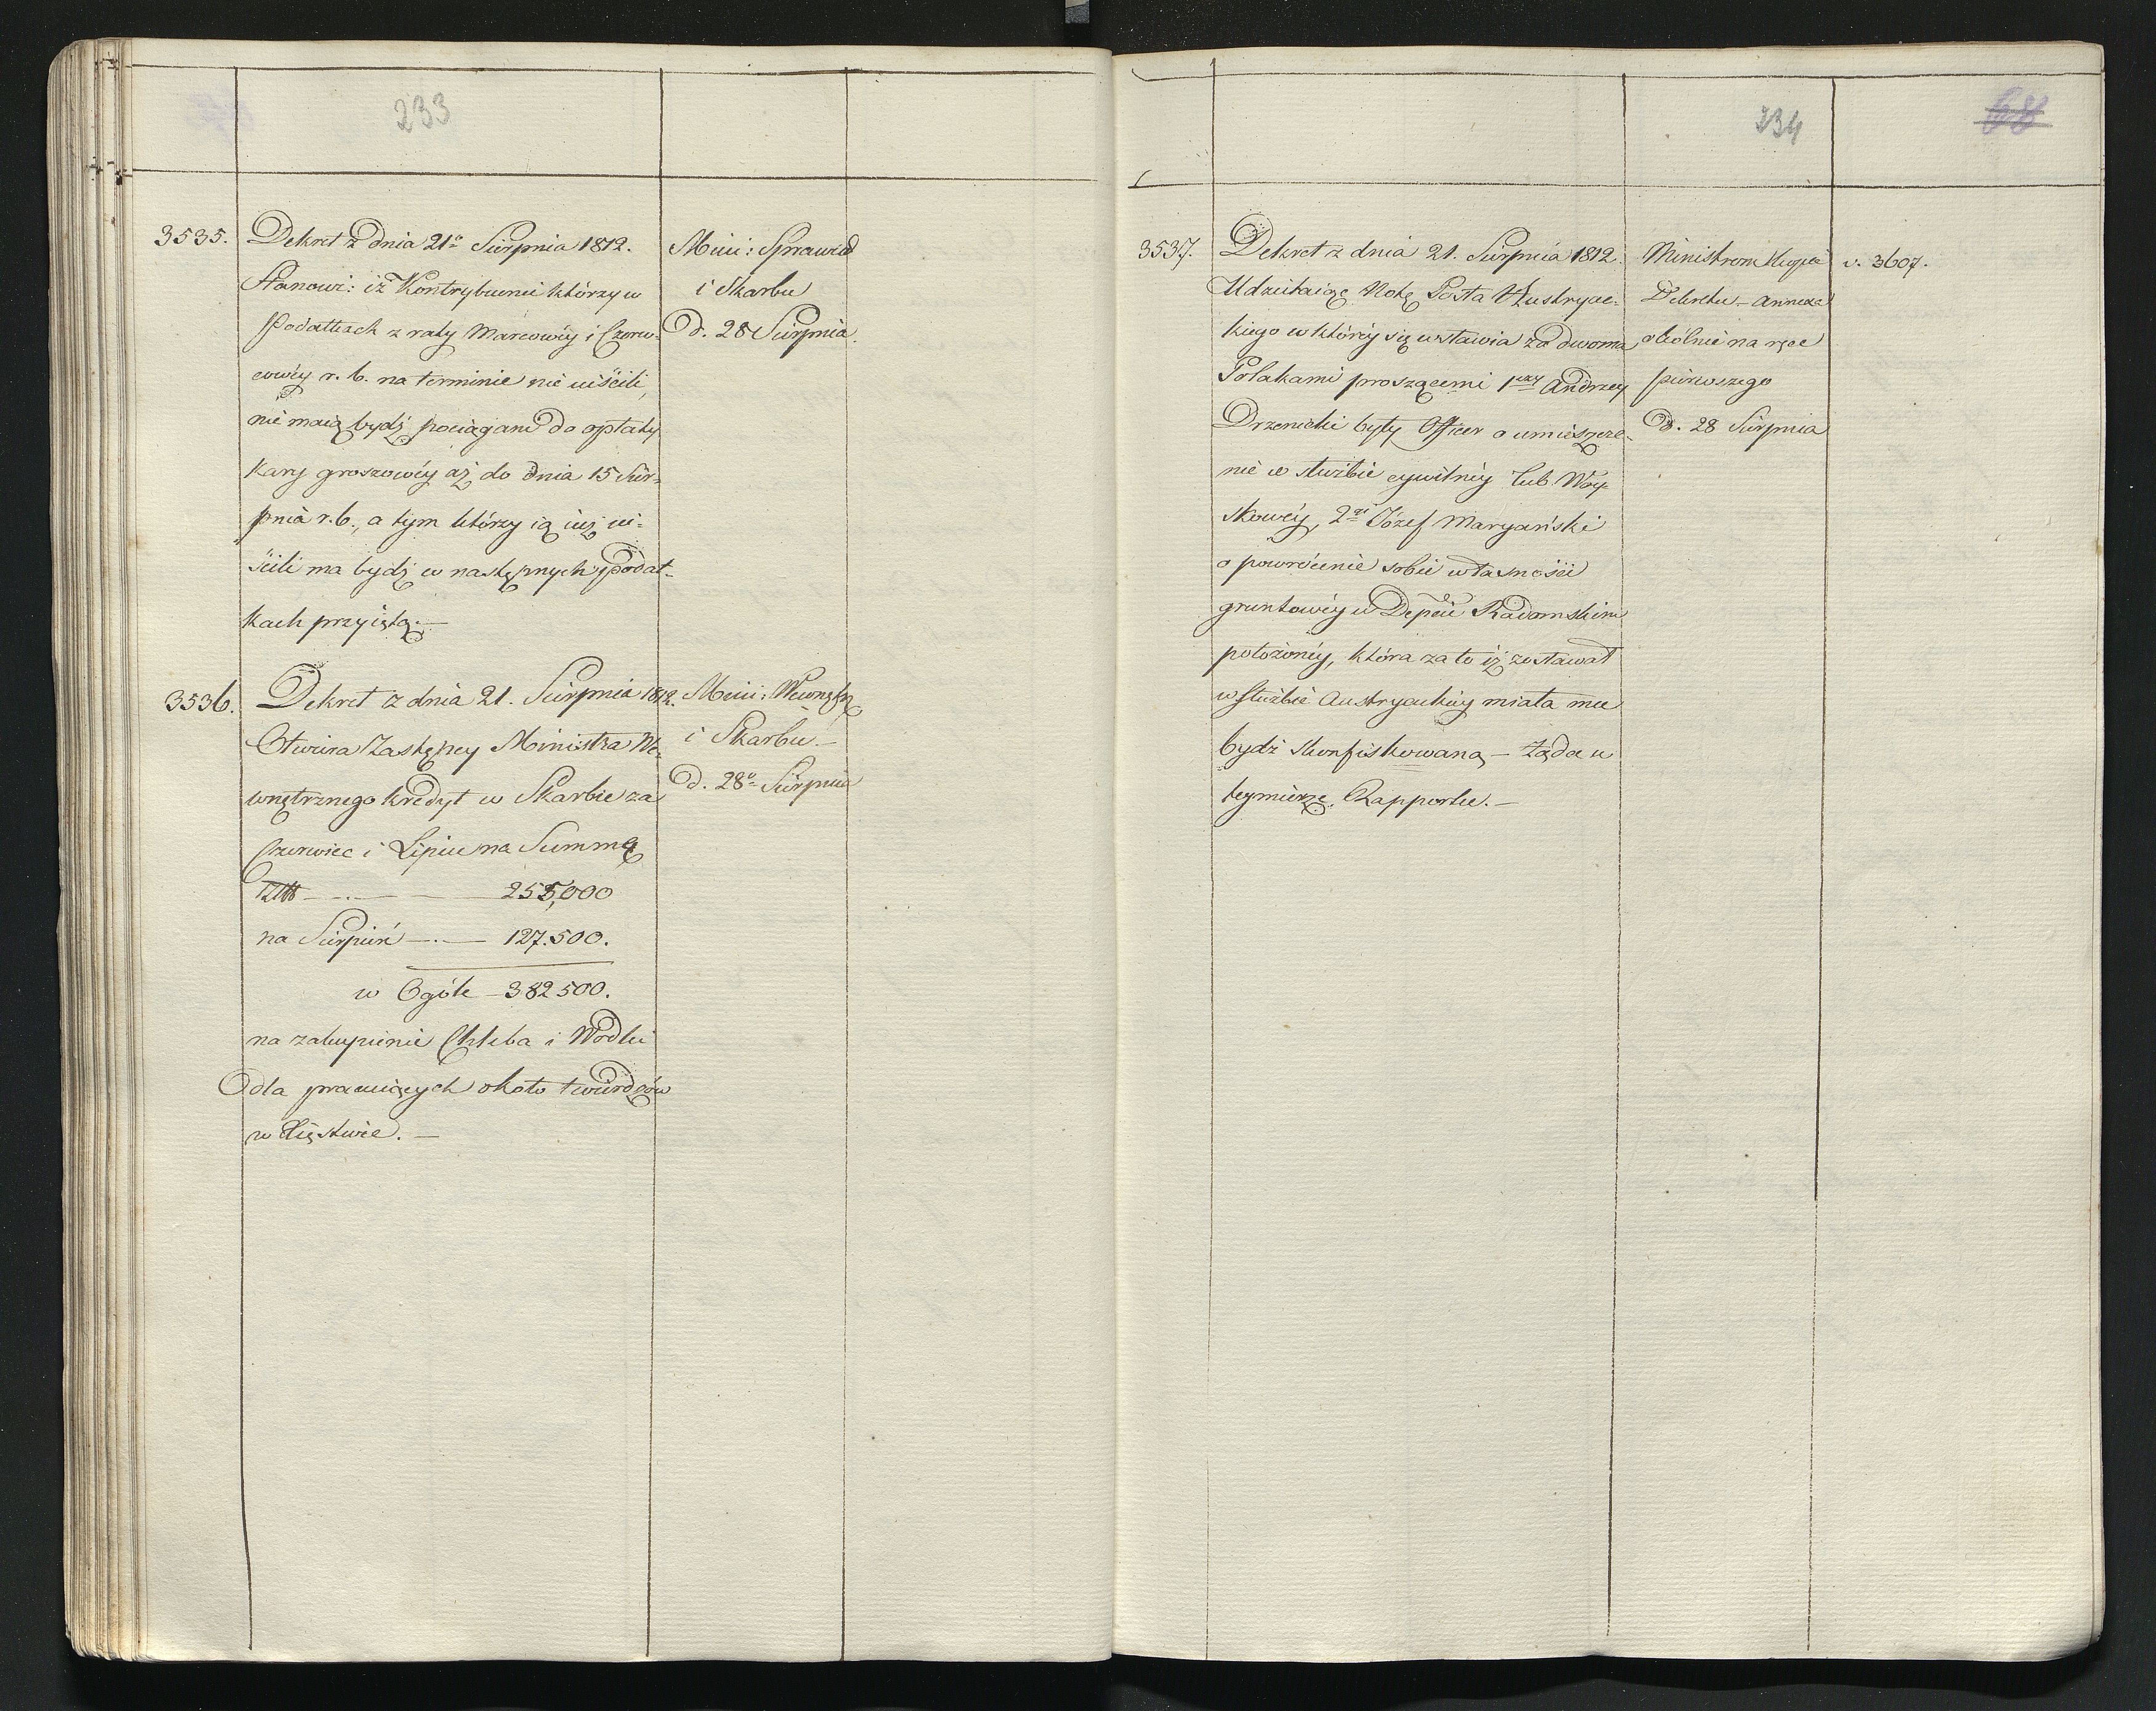 233
3535. Dekret z dnia 21º Sierpnia 1812.
Stanowi: iż Kontrybuenci którzy w
Podatkach z raty Marcowéy i Czerw-
cowéy r. b. na terminie nie uiścili,
nie maią bydź pociągani do opłaty
Kary groszowéy aż do dnia 15 Sier-
pnia r. b., a tym którzy ią iuż ui-
ścili ma bydź w następnych Podat-
kach przyiętą.—
Mini: Sprawied
i Skarbu
D. 28 Sierpnia.
3536. Dekret z dnia 21. Sierpnia 1812.
Otwiera Zastępcy Ministra We-
wnętrznego kredyt w Skarbie za
Czerwiec i Lipiec na Summę
255,000
na Sierpień —.— 127.500.
w Ogóle — 382500.
na zakupienie Chleba i Wódki
dla pracuiących około twierdzów
w Xięstwie.—
Mini: Wewnętrz
i Skarbu.—
D. 28º Sierpnia
234
68
3537. Dekret z dnia 21. Sierpnia 1812.
Udzielaiąc Notę Posła Austryac-
kiego w któréy się wstawia za dwoma
Polakami proszącemi 1szy Andrzey
Drzenicki były Officer o umieszcze-
nie w służbie cywilnéy lub Woy-
skowéy, 2gi Józef Maryański
o powrócenie sobie własności
gruntowéy w Depcie Radomskim
położonéy, która za to iż zostawał
w służbie Austryackiéy miała mu
bydź skonfiskowaną — Żąda w
teymierze Rapportu.—
Ministrom
Dekretu — annexa
oólnie na ręce
pierwszego
D. 28 Sierpnia
v. 3607.